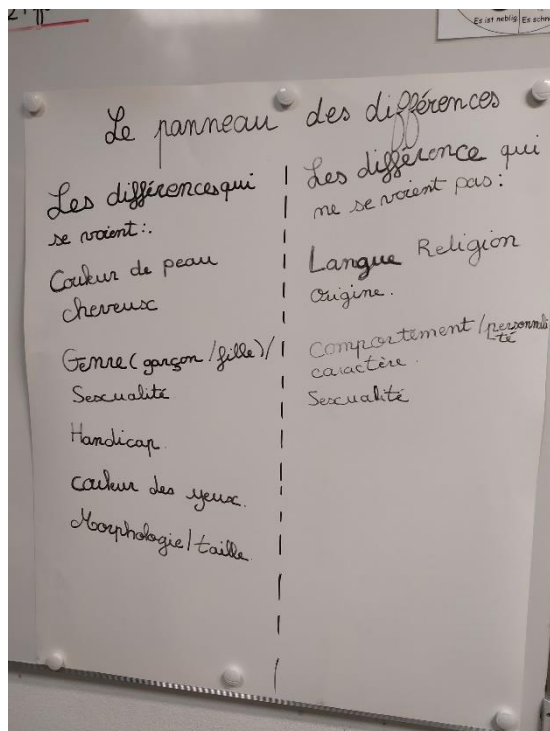 Es ist neblig. Es schn
Le panneau des différences
Les différences qui
se voient :.
Couleur de peau
cheveux
Genre (garçon / fille) /
Sexcualité
Handicap.
couleur des yeux.
Morphologie / taille.
Les différence qui
ne se voient pas :
Langue Religion
Origine.
Comportement / personnali
té
caractère.
Sexcualité